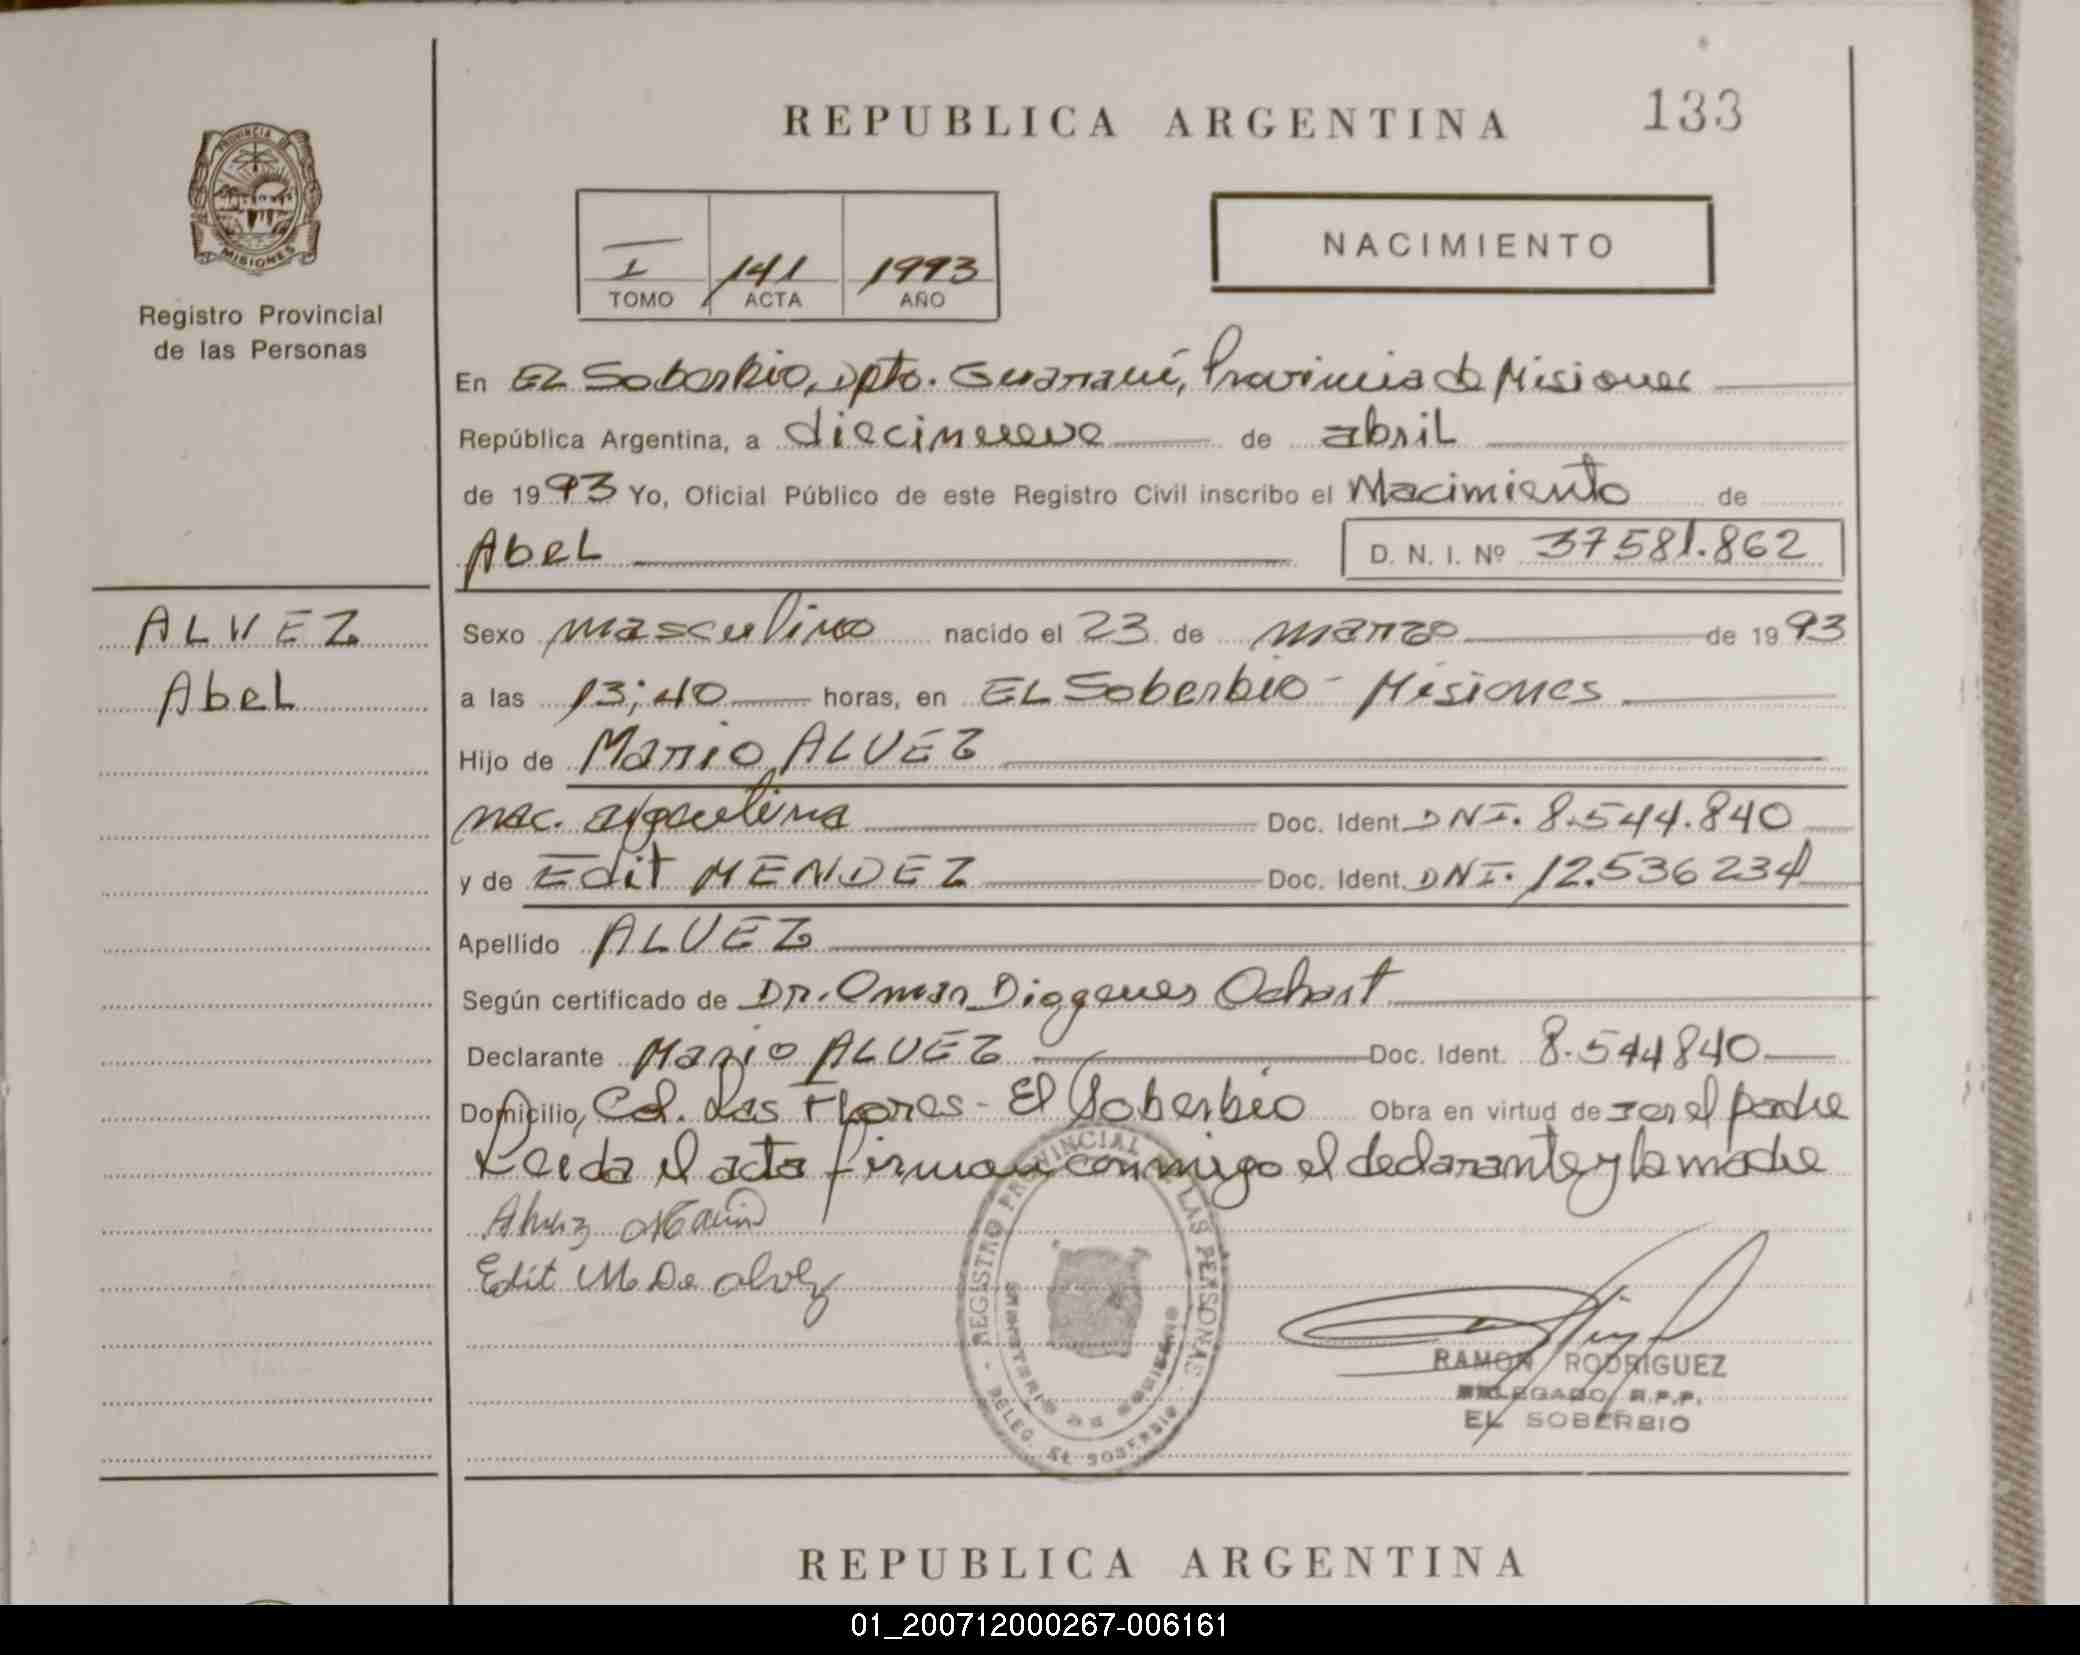 REPUBLICA ARGENTINA
133
PROVINCIA DE
MISIONES
Registro Provincial
de las Personas
I 141 1993
TOMO ACTA AÑO
NACIMIENTO
En EL Soberbio, Dpto. Guaraní, Provincia de Misiones
República Argentina, a diecinueve de abril
de 1993 Yo, Oficial Público de este Registro Civil inscribo el Nacimiento de
Abel D. N. I. Nº 37581.862
ALVEZ
Abel
Sexo masculino nacido el 23 de marzo de 1993
a las 13;40 horas, en EL Soberbio - Misiones
Hijo de Mario ALVEZ
nac. argentina Doc. Ident. DNI. 8.544.840
y de Edit MENDEZ Doc. Ident. DNI. 12.536234
Apellido ALVEZ
Según certificado de Dr. Omar Diogenes Ochart
Declarante Mario ALVEZ Doc. Ident. 8.544840
Domicilio, Col. Las Flores - El Soberbio Obra en virtud de ser el padre
Leida el acta firman conmigo el declarante y la madre
Alvez Mario
Edit M De alvez
REGISTRO PROVINCIAL DE LAS PERSONAS
MINISTERIO DE GOBIERNO
DELEG. EL SOBERBIO
RAMON RODRIGUEZ
DELEGADO R.P.P.
EL SOBERBIO
REPUBLICA ARGENTINA
01_200712000267-006161